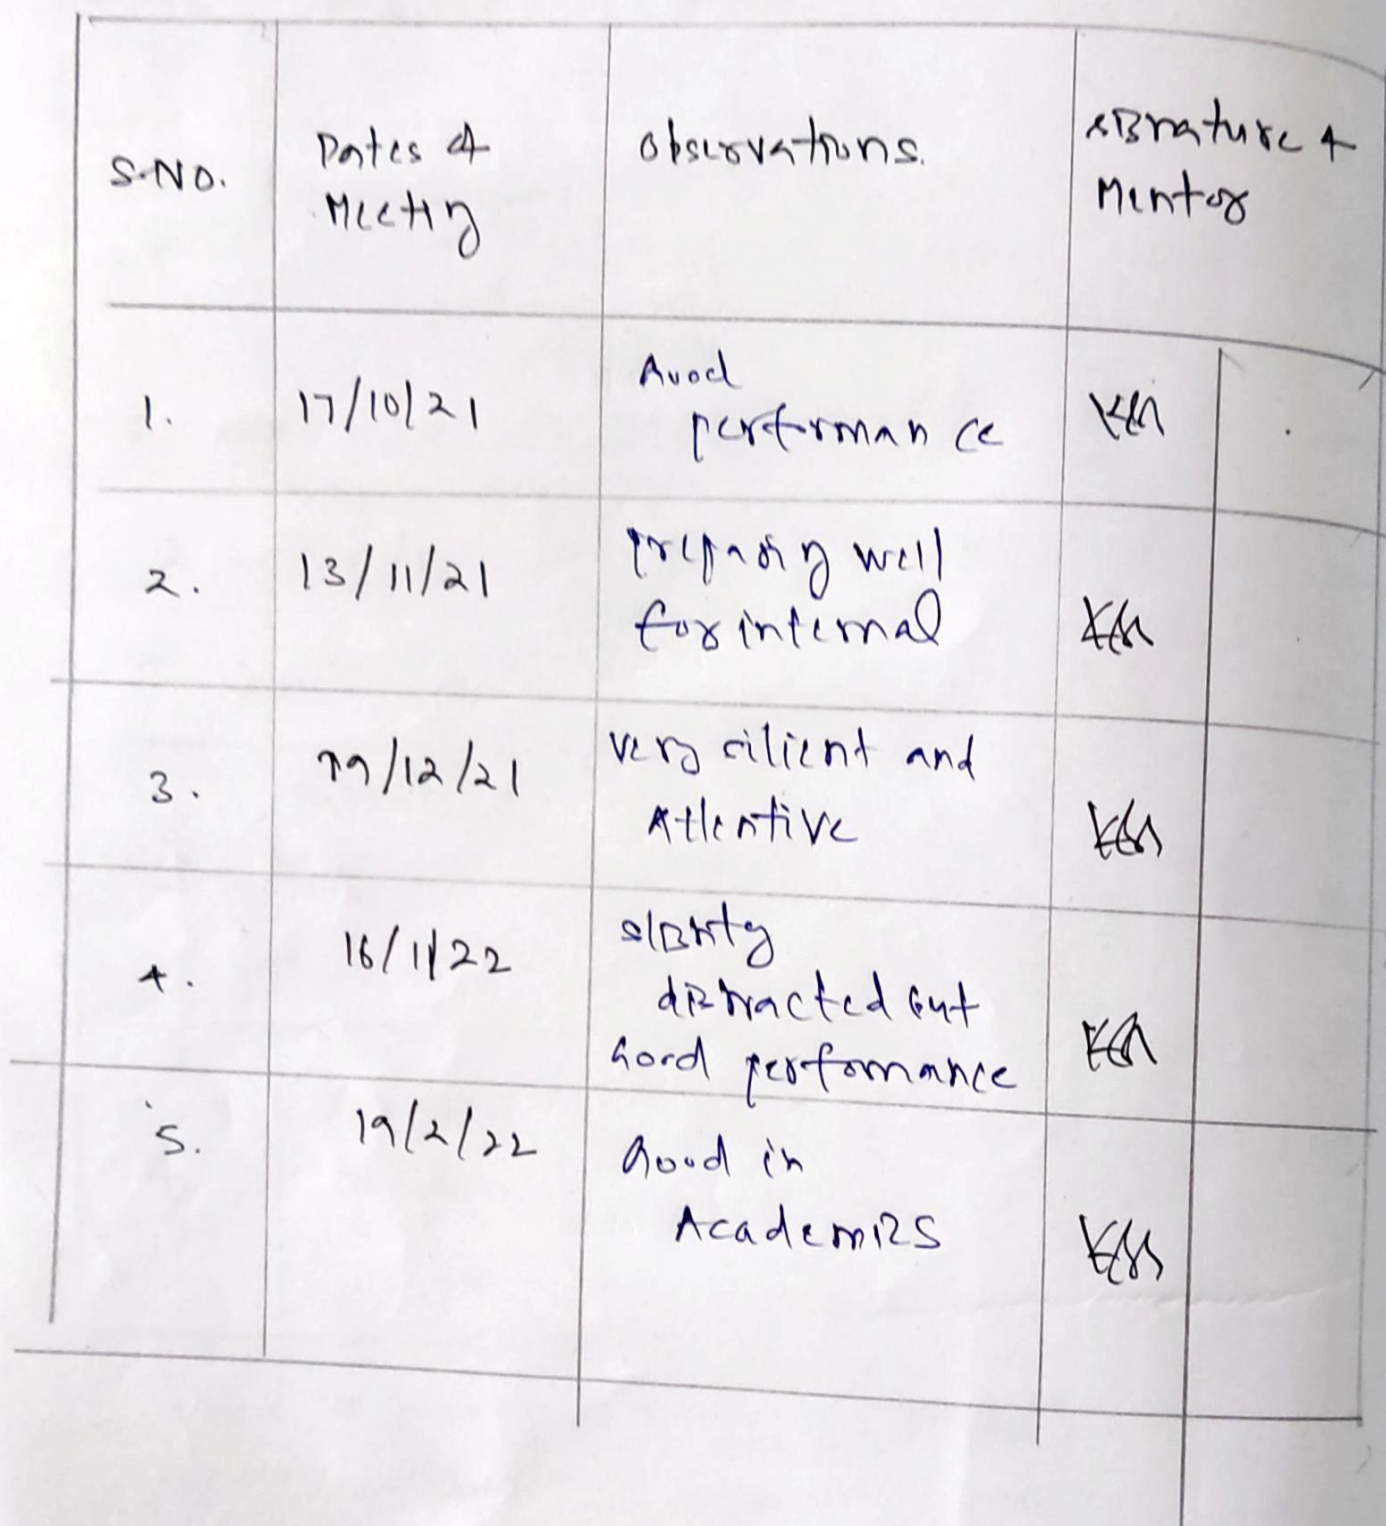 S.NO.
Dates of
Meeting
Observations.
signature of
Mentor
1.
17/10/21
Good
performance
2.
13/11/21
preparing well
for internal
3.
19/12/21
very cilient and
Attentive
4.
16/1/22
slightly
distracted but
Good performance
5.
19/2/22
Good in
Academics